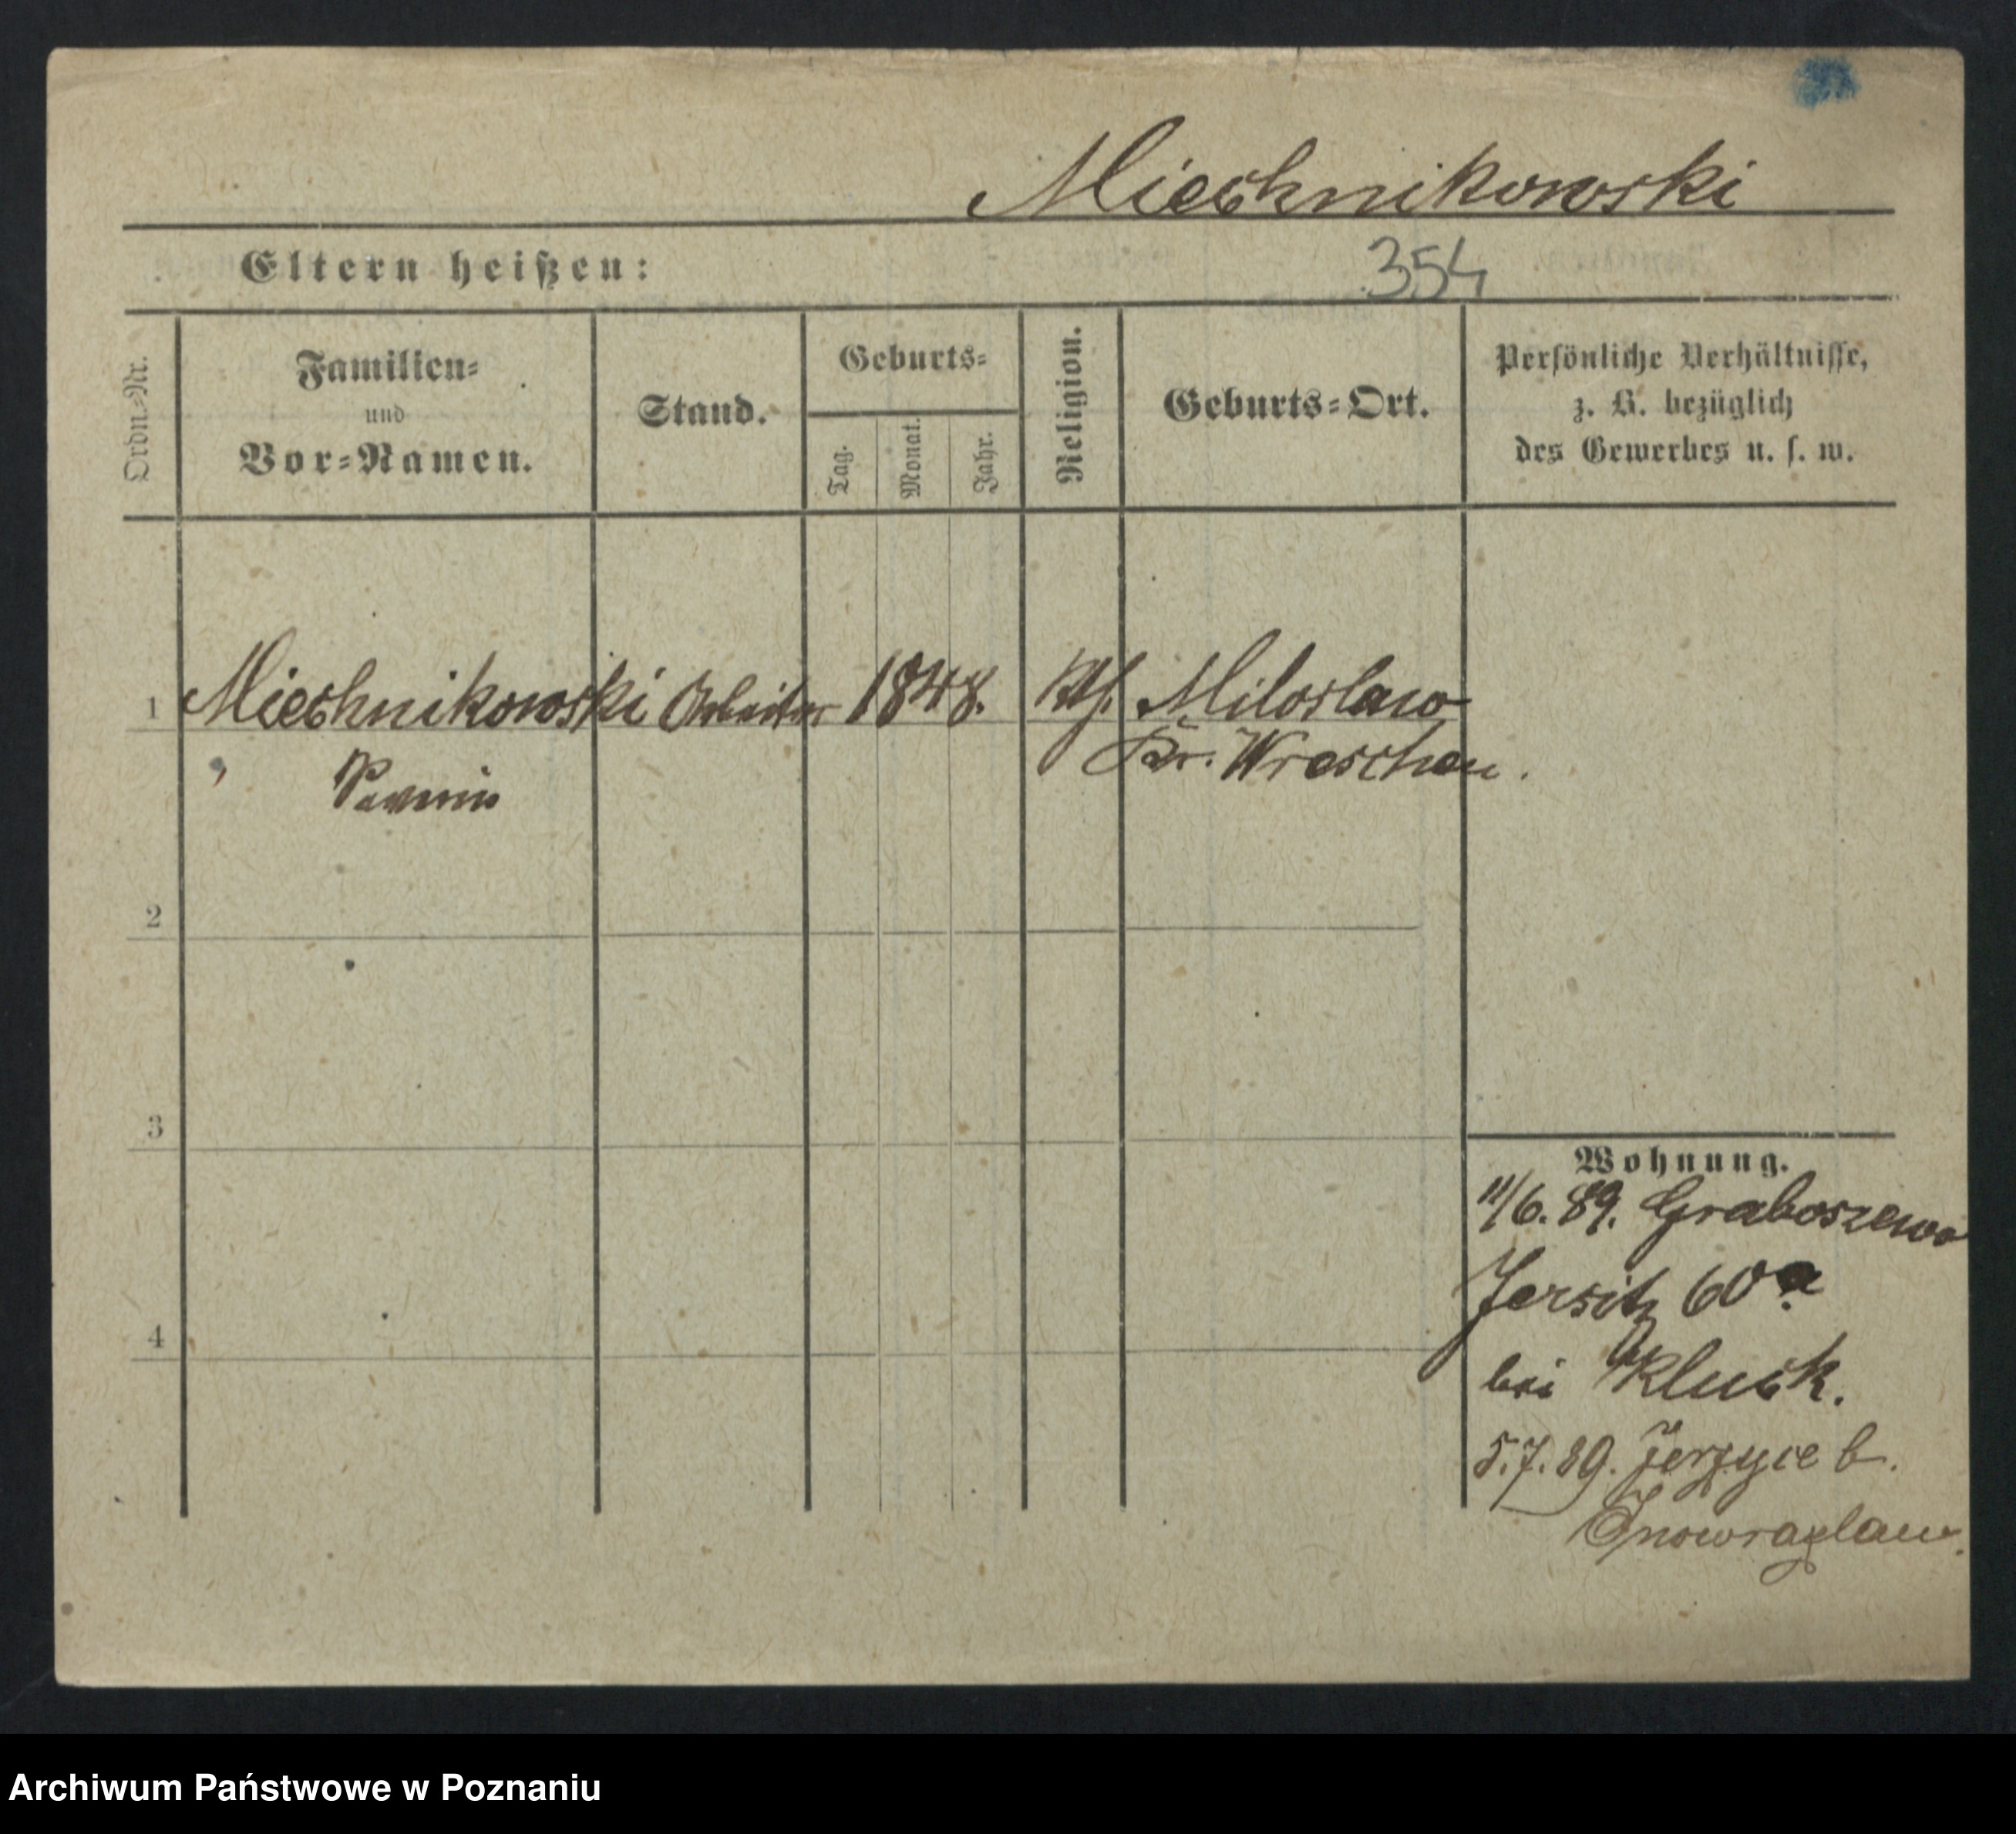 Miechnikowski
Eltern heißen:
354
Ordn.-Nr.
Familien-
und
Vor-Namen.
Stand.
Geburts-
Tag.
Monat.
Jahr.
Religion.
Geburts-Ort.
Persönliche Verhältnisse,
z. B. bezüglich
des Gewerbes u. s. w.
1 Miechnikowski Arbeiter 1848. Kth. Miloslaw
Kr. Wreschen.
2
3
4
Wohnung.
11/6. 89. Graboszewo
Jersitz 60a
bei Kluck.
5.7.89. Jerzyce b.
Inowrazlaw.
Archiwum Państwowe w Poznaniu